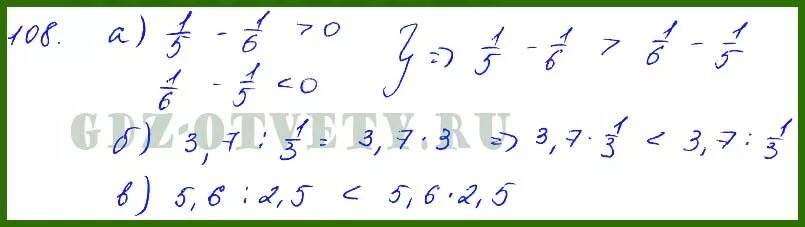 108. а) 1/5 - 1/6 > 0
1/6 - 1/5 < 0 } => 1/5 - 1/6 > 1/6 - 1/5
GDZ-OTVETY.RU
б) 3,7 : 1/3 = 3,7 · 3 => 3,7 · 1/3 < 3,7 : 1/3
в) 5,6 : 2,5 < 5,6 · 2,5